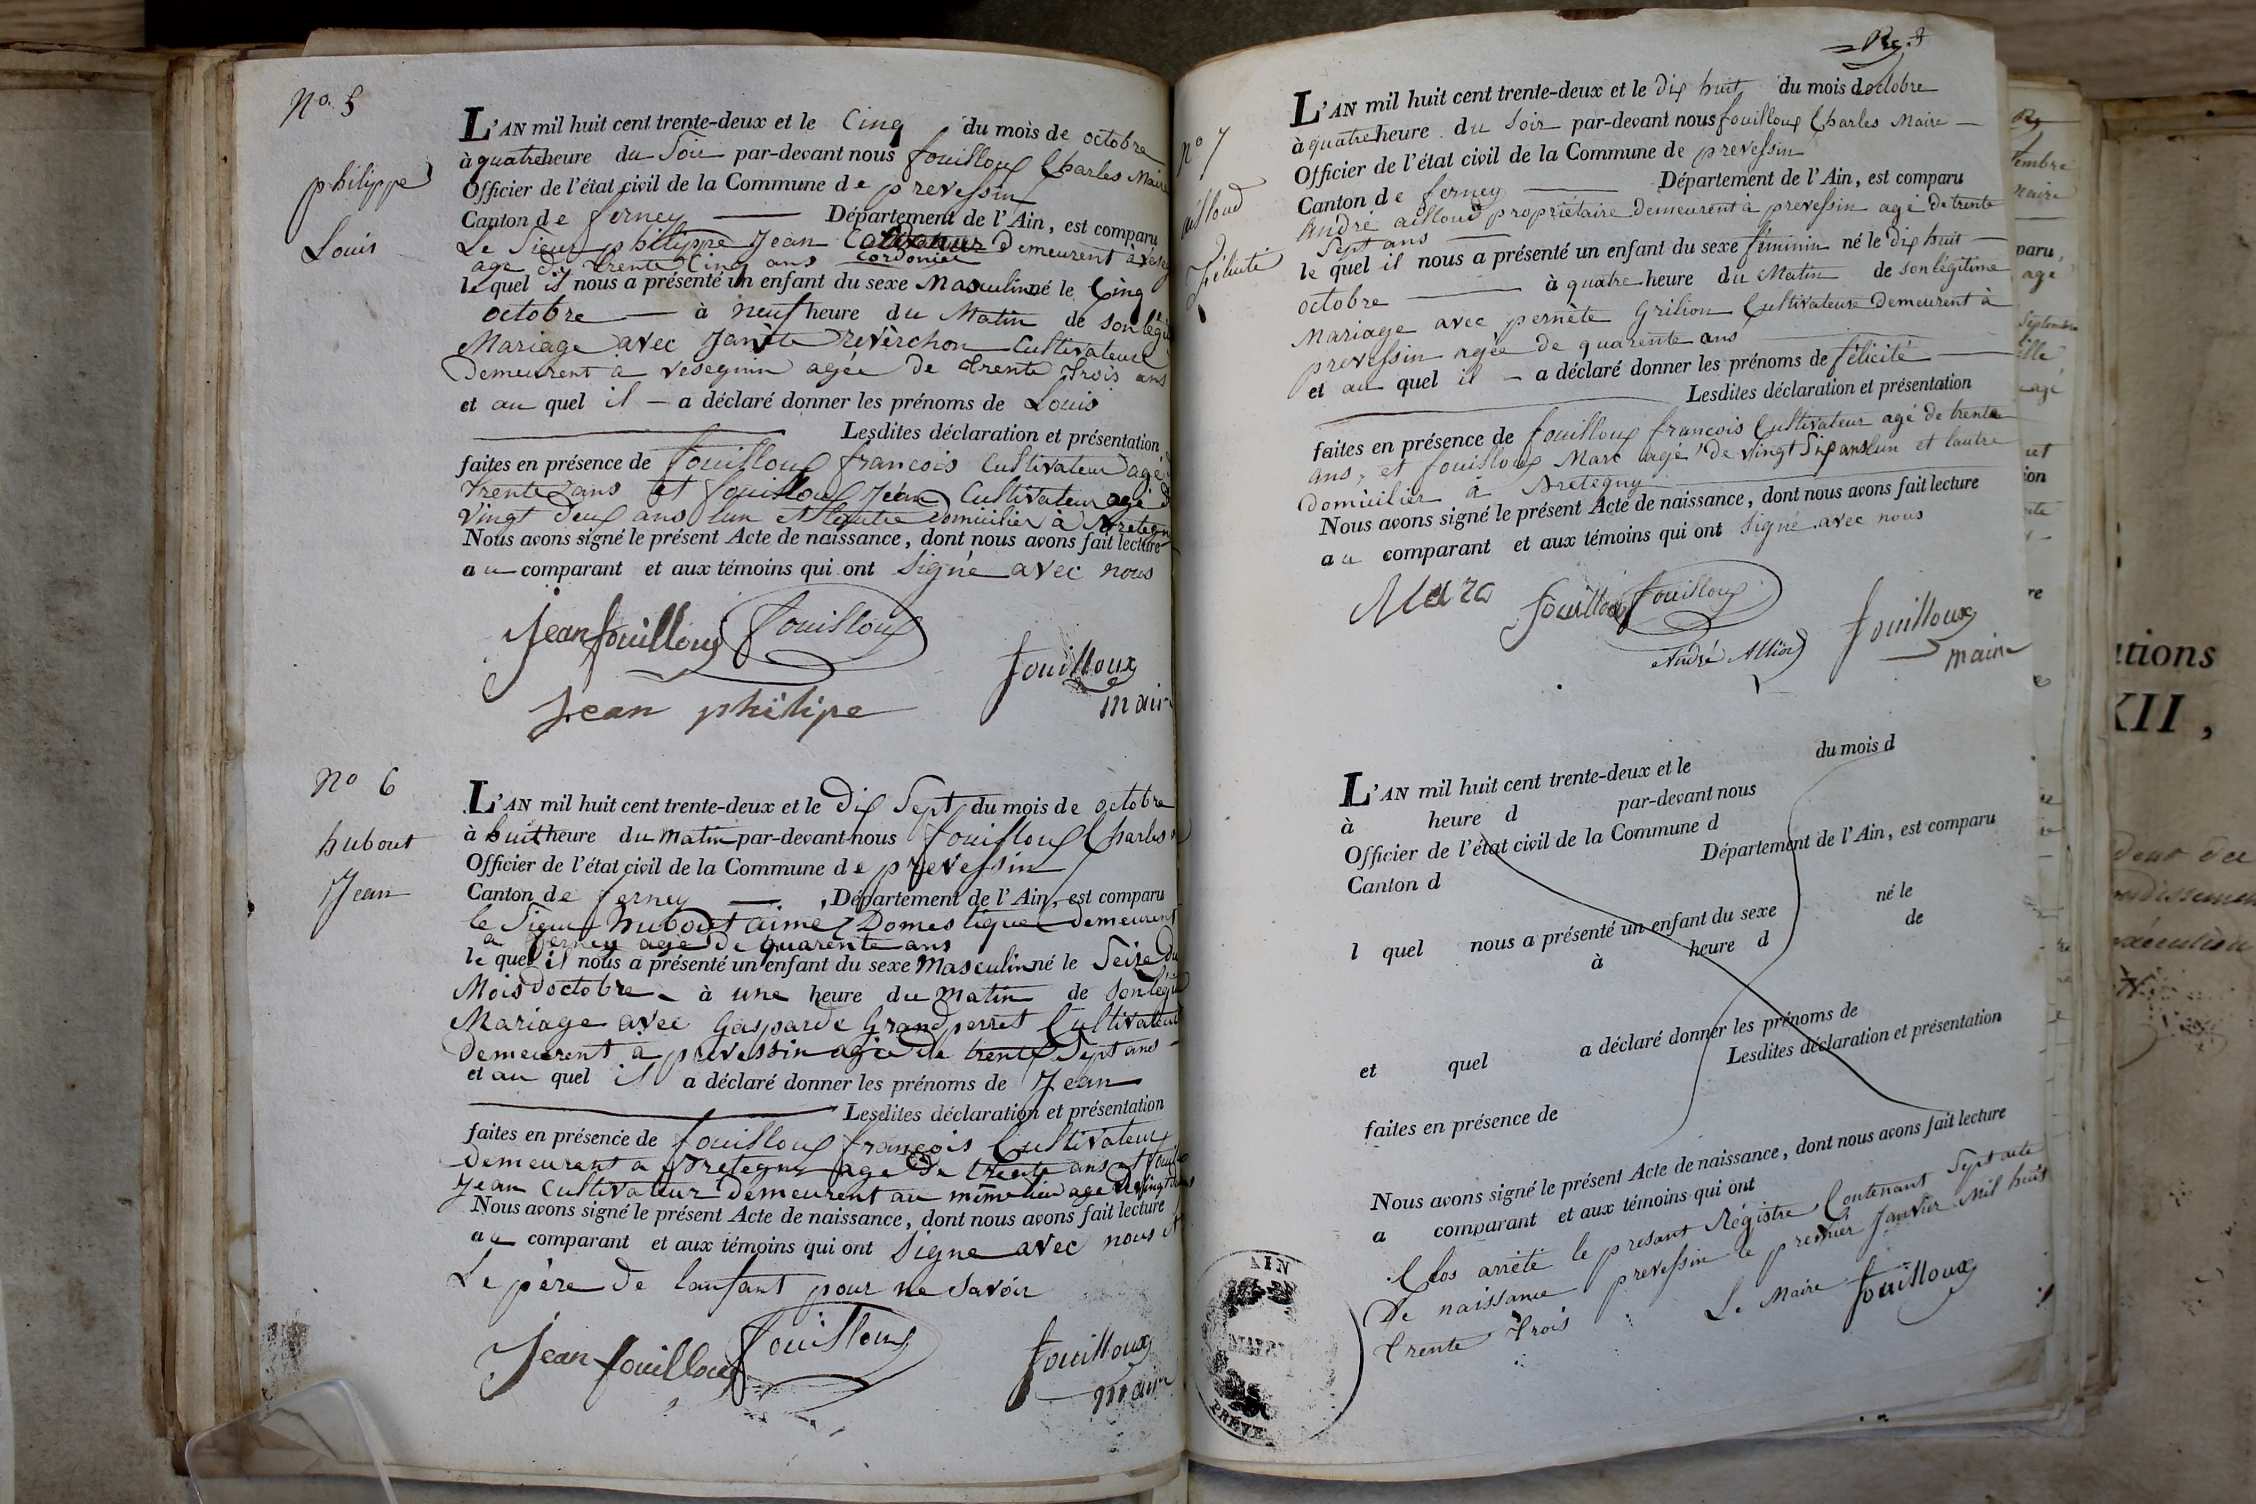 No. 5
philippe
Louis
L'AN mil huit cent trente-deux et le Cinq du mois de octobre
à quatre heure du Soir par-devant nous fouilloux Charles Maire
Officier de l'état civil de la Commune de prevessin
Canton de ferney Département de l'Ain, est comparu
Le Sieur philippe Jean demeurent à
cordonier
age de trente Cinq ans
le quel il nous a présenté un enfant du sexe Masculin né le Cinq
octobre — à neuf heure du Matin de son légi
Mariage avec Janète reverchon Cultivateure
Demeurent à vesegnin agée de trente trois ans
et au quel il — a déclaré donner les prénoms de Louis
Lesdites déclaration et présentation
faites en présence de fouilloux francois Cultivateur agé
trente ans et fouilloux Jean Cultivateur agé d
vingt deux ans lun et lautre domicilier à Bretegn
Nous avons signé le présent Acte de naissance, dont nous avons fait lecture
au comparant et aux témoins qui ont Signé avec nous
Jean fouilloux fouilloux
fouilloux
maire
Jean philipe
No 6
hubout
Jean
L'AN mil huit cent trente-deux et le Dix Sept du mois de octobre
à huit heure du matin par-devant nous fouilloux Charles
Officier de l'état civil de la Commune de prevessin
Canton de ferney — Département de l'Ain, est comparu
le Sieur hubout aimé Domestique demeurent
a ferney agé de quarente ans
le quel il nous a présenté un enfant du sexe Masculin né le Seize du
Mois doctobre à une heure du matin de son légi
Mariage avec Gasparde Grandperret Cultivateur
demeurent a prevessin agée de trente Sept ans
et au quel il a déclaré donner les prénoms de Jean
Lesdites déclaration et présentation
faites en présence de fouilloux françois Cultivateur
demeurent a Bretegny age de trente ans et foui
Jean Cultivateur demeurent au même lieu age de vingt
Nous avons signé le présent Acte de naissance, dont nous avons fait lecture
au comparant et aux témoins qui ont Signe avec nous
Le père de lanfant pour ne savoir
Jean fouilloux fouilloux
fouilloux
maire
no 7
ailloud
félicité
L'AN mil huit cent trente-deux et le dix huit du mois doctobre
à quatre heure du Soir par-devant nous fouilloux Charles Maire —
Officier de l'état civil de la Commune de prevessin
Canton de ferney Département de l'Ain, est comparu
André ailloud propriétaire demeurent à prevessin agé de trente
Sept ans
le quel il nous a présenté un enfant du sexe féminin né le dix huit —
octobre — à quatre heure du Matin de son légitime
Mariage avec pernète Grilion Cultivateure demeurent à
prevessin agée de quarente ans
et au quel il — a déclaré donner les prénoms de félicité —
Lesdites déclaration et présentation
faites en présence de fouilloux francois Cultivateur agé de trente
ans, et fouilloux Marc agé de vingt Six ans lun et lautre
domicilier à Bretegny
Nous avons signé le présent Acte de naissance, dont nous avons fait lecture
au comparant et aux témoins qui ont Signé avec nous
Marc fouilloux fouilloux
fouilloux
maire
André Alliod
L'AN mil huit cent trente-deux et le du mois d
à heure d par-devant nous
Officier de l'état civil de la Commune d
Canton d Département de l'Ain, est comparu
l quel nous a présenté un enfant du sexe né le
à heure d de
et quel a déclaré donner les prénoms de
Lesdites déclaration et présentation
faites en présence de
Nous avons signé le présent Acte de naissance, dont nous avons fait lecture
a comparant et aux témoins qui ont
Clos arrêté le presant Régistre Contenant Sept acte
De naissance prevessin le premier Janvier mil huit
trente trois
Le Maire fouilloux
AIN
PREVE
tembre
maire
paru,
agé
Septembre
ille
agé
ion
re
ations
XII,